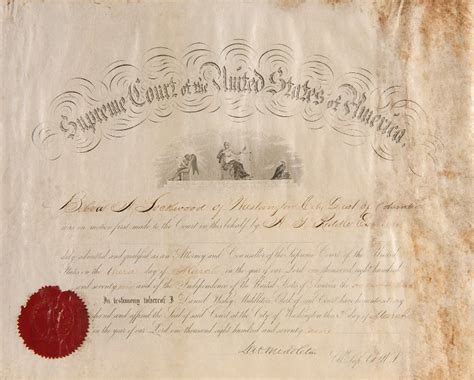 Supreme Court of the United States of America.
Belva A. Lockwood of Washington City, Dist of Columbia
was on motion first made to the Court in this behalf by A. G. Riddle Esquire
duly admitted and qualified as an Attorney and Counsellor of the Supreme Court of the United
States on the third day of March in the year of our Lord one thousand eight hundred
and seventy nine and of the Independence of the United States of America the
In testimony whereof I Daniel Wesley Middleton Clerk of said Court have hereunto set my
hand and affixed the Seal of said Court at the City of Washington this 3 day of March
in the year of our Lord one thousand eight hundred and seventy nine